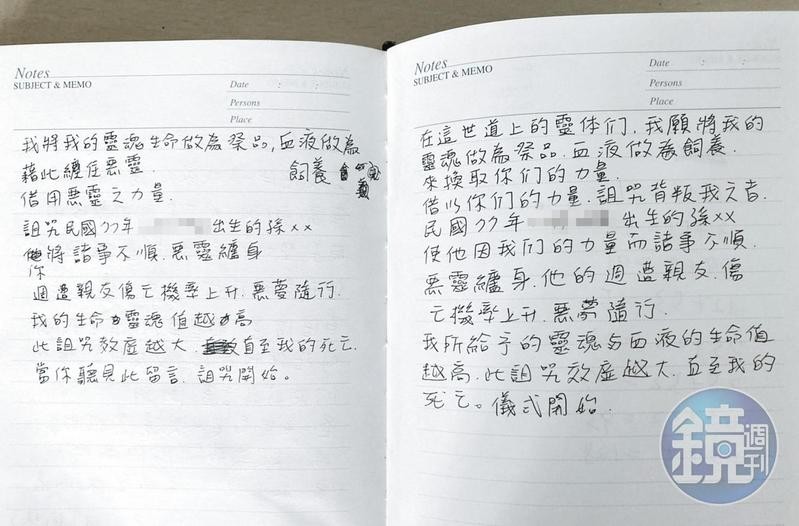 Notes
SUBJECT & MEMO
Date : :
Persons
Place
我將我的靈魂生命做為祭品,血液做為
飼養
藉此纏住惡靈.
借用惡靈之力量.
詛咒民國77年 出生的孫xx
你將諸事不順.惡靈纏身
週遭親友傷亡機率上升.惡夢隨行.
我的生命 靈魂值越高
此詛咒效應越大. 直至我的死亡.
當你聽見此留言.詛咒開始。
Notes
SUBJECT & MEMO
Date : :
Persons
Place
在這世道上的靈体们.我願將我的
靈魂做為祭品.血液做為飼養.
來換取你们的力量.
借以你们的力量.詛咒背叛我之者.
民國77年 出生的孫xx
使他因我们的力量而諸事不順.
惡靈纏身.他的週遭親友.傷
亡機率上升.惡夢隨行.
我所給予的靈魂与血液的生命值
越高.此詛咒效應越大.直至我的
死亡。儀式開始.
鏡週刊